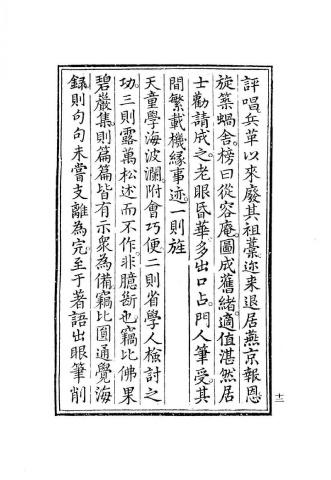 評唱兵革以來廢其祖藁迩來退居燕京報恩
旋築蝸舍榜曰從容庵圖成舊緒適值湛然居
士勸請成之老眼昏華多出口占門人筆受其
間繁載機緣事迹一則旌
天童學海波瀾附會巧便二則省學人檢討之
功三則露萬松述而不作非臆斷也竊比佛果
碧巖集則篇篇皆有示衆為備竊比圓通覺海
錄則句句未嘗支離為完至于著語出眼筆削
十二